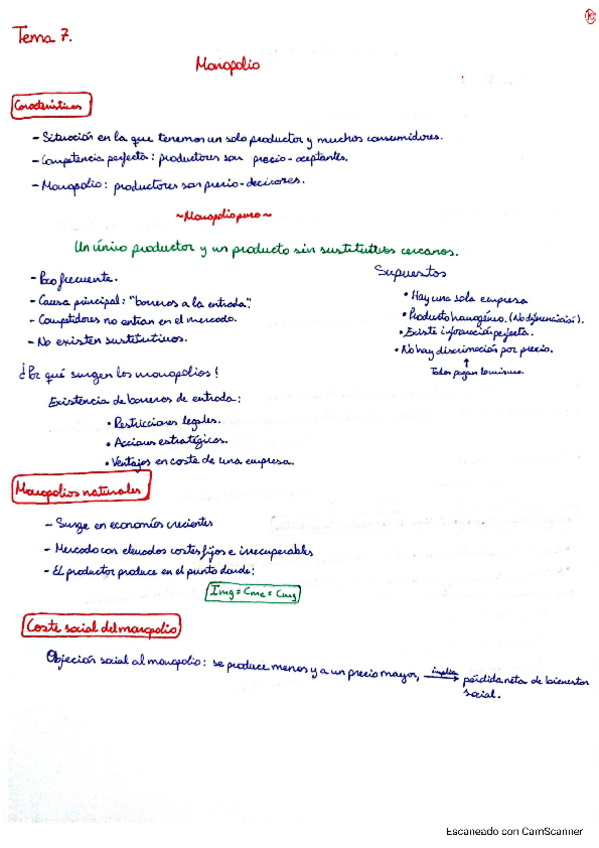 Tema 7.
Monopolio
Características
- Situación en la que tenemos un solo productor y muchos consumidores.
- Competencia perfecta: productores son precio-aceptantes.
- Monopolio: productores son precio-decisores.
~Monopolio puro~
Un único productor y un producto sin sustitutivos cercanos.
- Poco frecuente.
- Causa principal: "barreras a la entrada".
- Competidores no entran en el mercado.
- No existen sustitutivos.
Supuestos
• Hay una sola empresa
• Producto homogéneo. (No diferenciación).
• Existe información perfecta.
• No hay discriminación por precio.
↑
Todos pagan lo mismo.
¿Por qué surgen los monopolios?
Existencia de barreras de entrada:
• Restricciones legales.
• Acciones estratégicas.
• Ventajas en coste de una empresa.
Monopolios naturales
- Surge en economías crecientes
- Mercado con elevados costes fijos e irrecuperables
- El productor produce en el punto donde:
Img = Cme = Cmg
Coste social del monopolio
Objeción social al monopolio: se produce menos y a un precio mayor, implica → pérdida neta de bienestar
social.
Escaneado con CamScanner